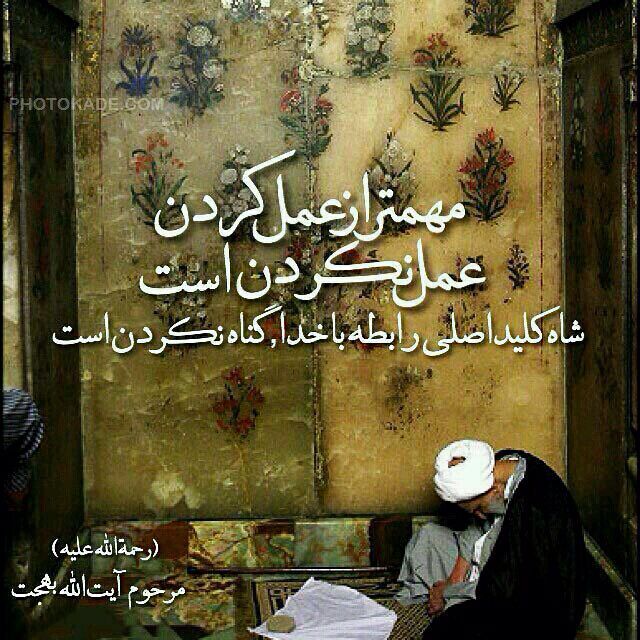 PHOTOKADE.COM
مهمتر از عمل کردن
عمل نکردن است
شاه کلید اصلی رابطه با خدا, گناه نکردن است
(رحمة الله علیه)
مرحوم آیت الله بهجت